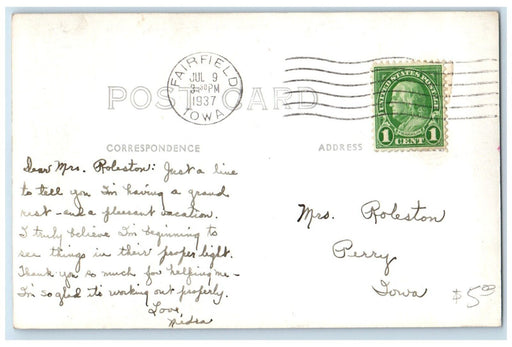 FAIRFIELD
JUL 9
3 30 PM
1937
IOWA
POST CARD
UNITED STATES POSTAGE
1 CENT 1
CORRESPONDENCE
ADDRESS
Dear Mrs. Roleston: Just a line
to tell you I'm having a grand
rest - and a pleasant vacation.
I truly believe I'm beginning to
see things in their proper light.
Thank you so much for helping me -
I'm so glad its working out properly.
Love,
Mrs. Roleston
Perry
Iowa
$5.00